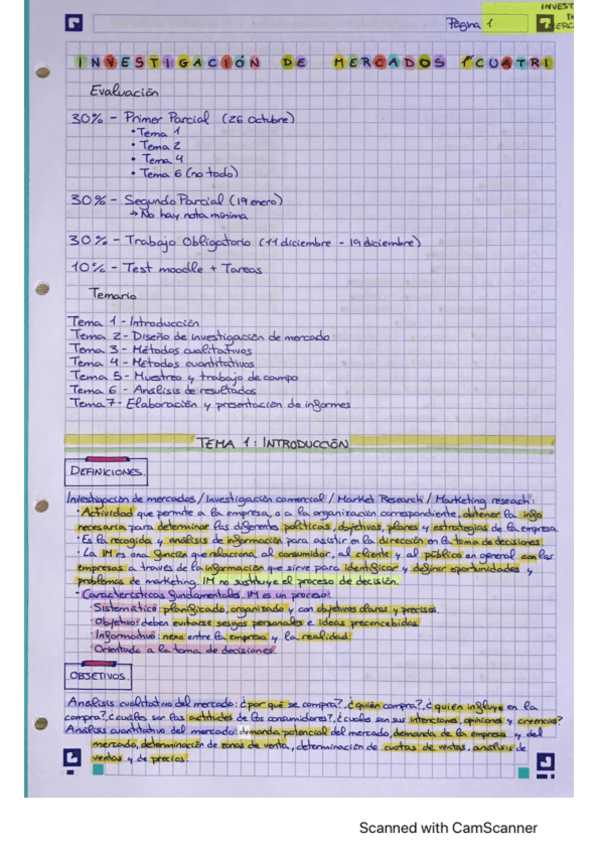 INVEST
Página 1
INVESTIGACIÓN DE MERCADOS 1ºCUATRI
Evaluación
30% - Primer Parcial (26 Octubre)
• Tema 1
• Tema 2
• Tema 4
• Tema 6 (no todo)
30% - Segundo Parcial (19 enero)
→ No hay nota mínima
30% - Trabajo Obligatorio (11 diciembre - 19 diciembre)
10% - Test moodle + Tareas
Temario
Tema 1 - Introducción
Tema 2 - Diseño de investigación de mercado
Tema 3 - Métodos cualitativos
Tema 4 - Métodos cuantitativos
Tema 5 - Muestreo y trabajo de campo
Tema 6 - Análisis de resultados
Tema 7 - Elaboración y presentación de informes
TEMA 1: INTRODUCCIÓN
DEFINICIONES.
Investigación de mercados / Investigación comercial / Market Research / Marketing reseach:
• Actividad que permite a la empresa, o a la organización correspondiente, obtener la info
necesaria para determinar las diferentes políticas, objetivos, planes y estrategias de la empresa.
• Es la recogida y análisis de información para asistir en la dirección en la toma de decisiones.
• La IM es una función que relaciona al consumidor, al cliente y al público en general con las
empresas a través de la información que sirve para identificar y definir oportunidades y
problemas de marketing. IM no sustituye el proceso de decisión.
• Características fundamentales. IM es un proceso:
• Sistemático: planificado, organizado y con objetivos claros y precisos.
• Objetivo: deben evitarse sesgos personales e ideas preconcebidas
• Informativo: nexo entre la empresa y la realidad.
• Orientado a la toma de decisiones.
OBJETIVOS.
Análisis cualitativo del mercado: ¿por qué se compra?, ¿quién compra?, ¿quién influye en la
compra?, ¿cuáles son las actitudes de los consumidores?, ¿cuáles son sus intenciones, opiniones y creencias?
Análisis cuantitativo del mercado: demanda potencial del mercado, demanda de la empresa y del
mercado, determinación de zonas de venta, determinación de cuotas de ventas, análisis de
ventas y de precios.
Scanned with CamScanner